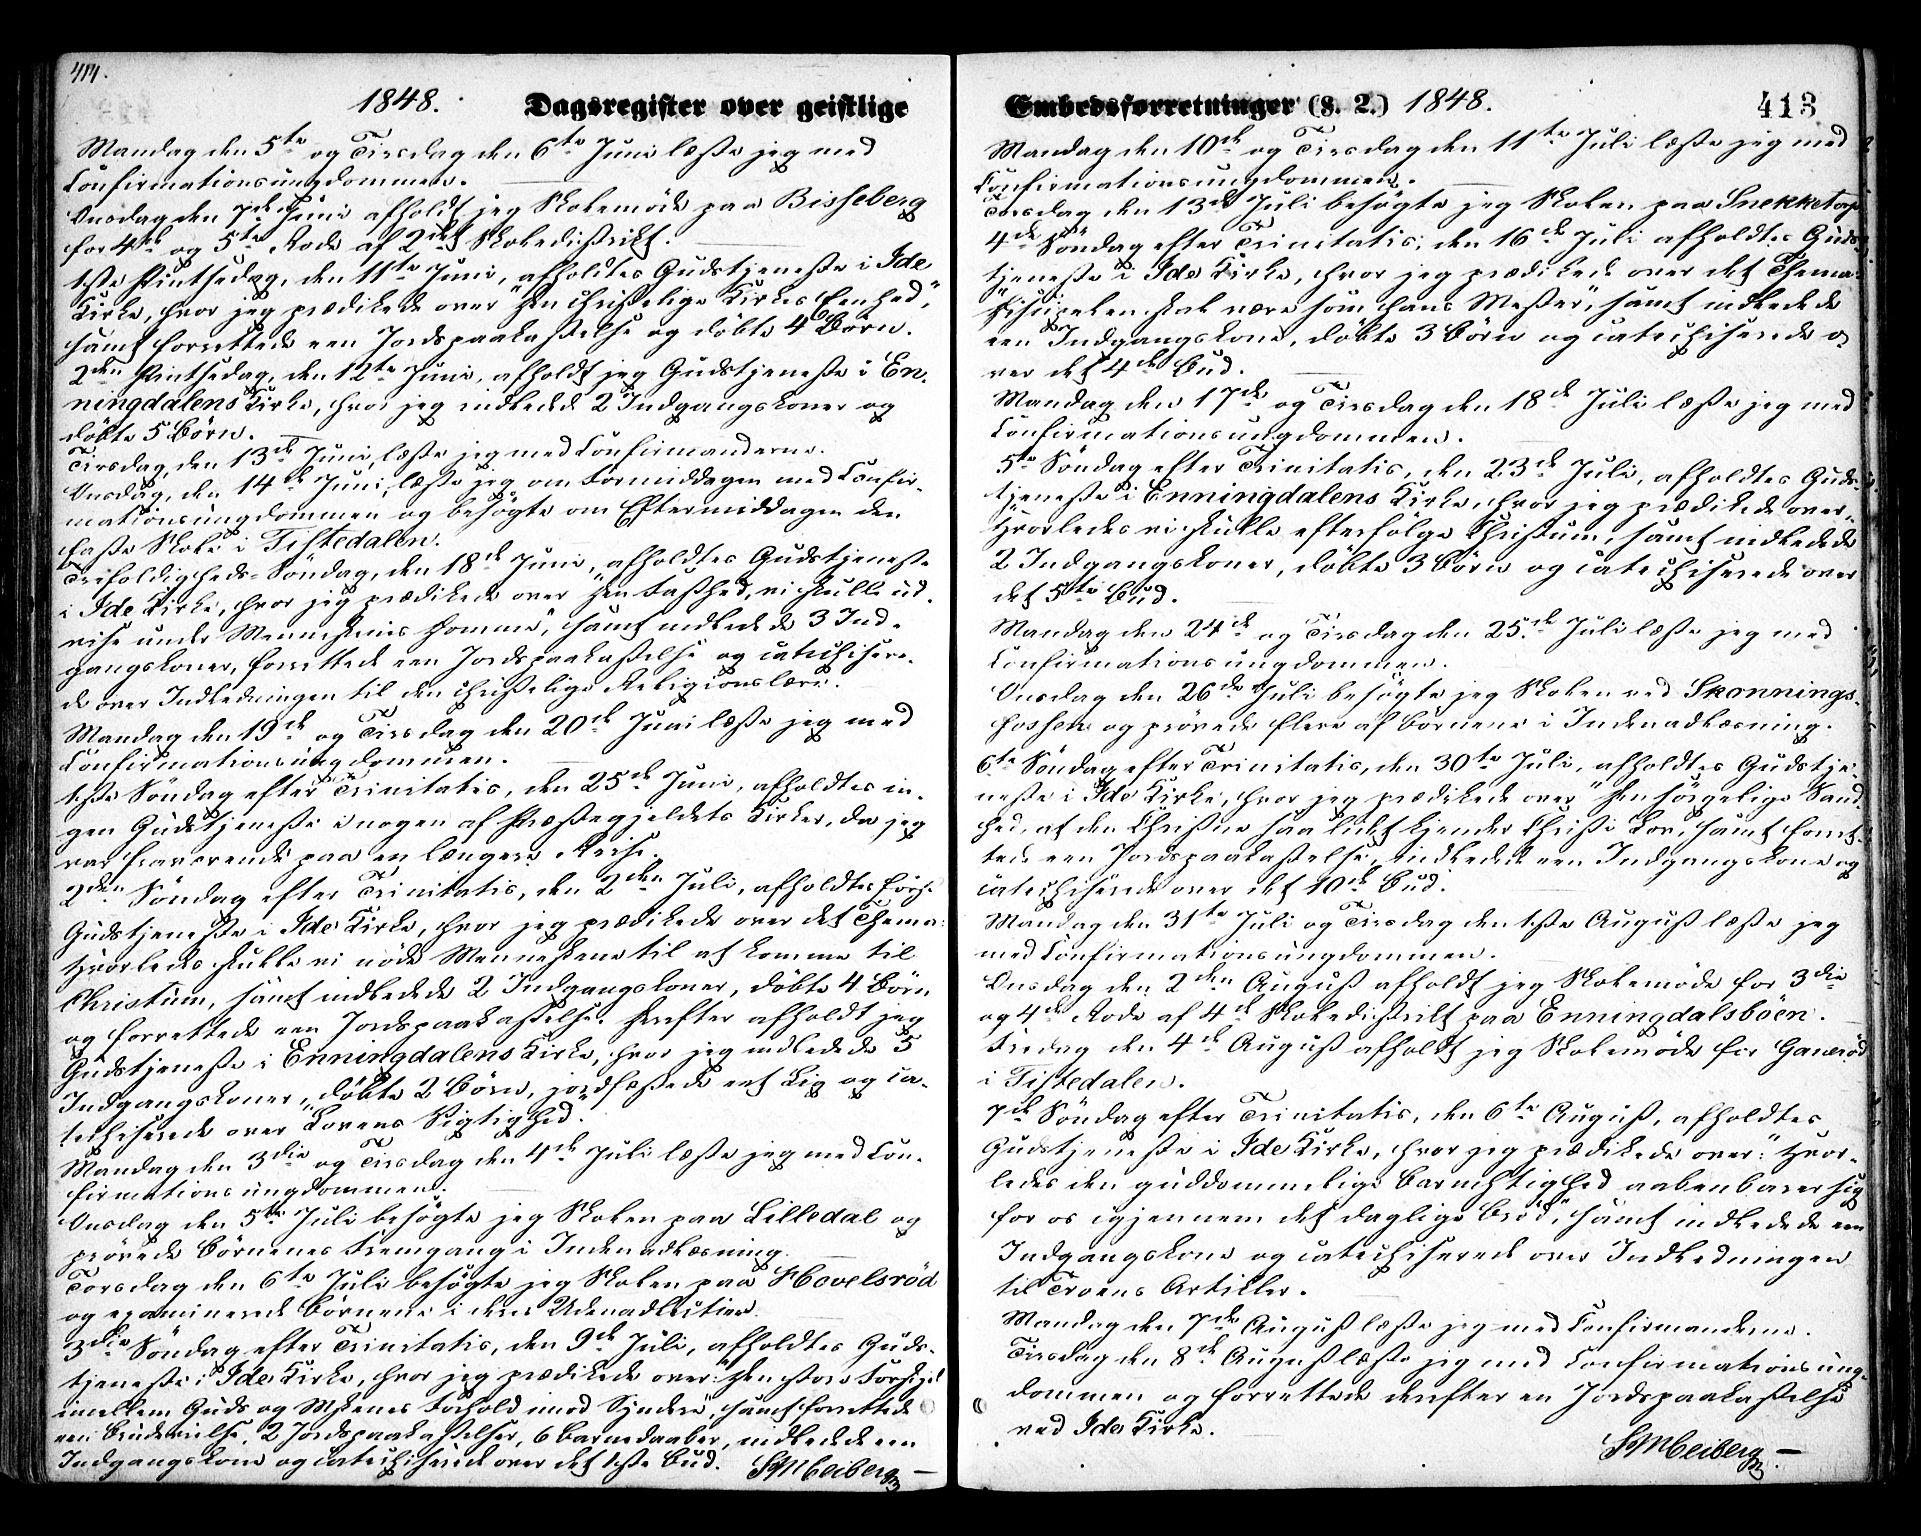 414.
1848. Dagsregister over geistlige
Mandag den 5te og Tirsdag den 6te Juni læste jeg med
Confirmationsungdommen.
Onsdag den 7de Juni afholdt jeg Skolemøde paa Bisseberg
for 4de og 5te Rode af 2det Skoledistrikt.
1ste Pintsedag, den 11te Juni, afholdtes Gudstjeneste i Ide
Kirke, hvor jeg prædikede over "Den christelige Kirkes Eenhed",
samt forrettede een Jordspaakastelse og döbte 4 Börn.
2den Pintsedag, den 12te Juni, afholdt jeg Gudstjeneste i En-
ningdalens Kirke, hvor jeg indledede 2 Indgangskoner og
döbte 5 Börn.
Tirsdag, den 13de Juni, læste jeg med Confirmanderne.
Onsdag, den 14de Juni, læste jeg om Formiddagen med Confir-
mationsungdommen og besögte om Eftermiddagen den
faste Skole i Tistedalen.
Trefoldigheds-Söndag, den 18de Juni, afholdtes Gudstjeneste
i Ide Kirke, hvor jeg prædikede over "Den Fasthed, vi skulle ud-
vise under Menneskenes Domme", samt indledede 3 Ind-
gangskoner, forrettede een Jordspaakastelse og catechisere-
de over Indledningen til den christelige Religionslære.
Mandag den 19de og Tirsdag den 20de Juni læste jeg med
Confirmationsungdommen.
1ste Söndag efter Trinitatis, den 25de Juni, afholdtes in-
gen Gudstjeneste i nogen af Præstegjeldets Kirker, da jeg
var fraværende paa en længere Reise.
2den Söndag efter Trinitatis, den 2den Juli, afholdtes först
Gudstjeneste i Ide Kirke, hvor jeg prædikede over det Thema:
Hvorledes skulle vi nöde Menneskene til at komme til
Christum, samt indledede 2 Indgangskoner, döbte 4 Börn
og forrettede een Jordspaakastelse. Derefter afholdt jeg
Gudstjeneste i Enningdalens Kirke, hvor jeg indledede 5
Indgangskoner, döbte 2 Börn, jordfæstede eet Lig og ca-
techiserede over "Lovens Vigtighed".
Mandag den 3die og Tirsdag den 4de Juli læste jeg med Con-
firmationsungdommen.
Onsdag den 5te Juli besögte jeg Skolen paa Lilledal og
prövede Börnenes Fremgang i Indenadlæsning.
Torsdag den 6te Juli besögte jeg Skolen paa Hovelsröd
og examinerede Börnene i deres Udenadlectier.
3die Söndag efter Trinitatis, den 9de Juli, afholdtes Guds-
tjeneste i Ide Kirke, hvor jeg prædikede over: "Den store Forskjel
imellem Guds og Mskenes Forhold imod Syndere", samt forrettede
een Brudevielse, 2 Jordspaakastelser, 6 Barnedaaber, indledede een
Indgangskone og catechiserede over det 1ste Bud. Heiberg
Embedsforretninger (§. 2.) 1848. 413
Mandag den 10de og Tirsdag den 11te Juli læste jeg med
Confirmationsungdommen.
Torsdag den 13de Juli besögte jeg Skolen paa Snekketorp
4de Söndag efter Trinitatis, den 16de Juli afholdtes Guds-
tjeneste i Ide Kirke, hvor jeg prædikede over det Thema:
"Discipelen skal være som hans Mester", samt indledede
een Indgangskone, döbte 3 Börn og catechiserede o-
ver det 4de Bud.
Mandag den 17de og Tirsdag den 18de Juli læste jeg med
Confirmationsungdommen.
5te Söndag efter Trinitatis, den 23de Juli, afholdtes Guds-
tjeneste i Enningdalens Kirke, hvor jeg prædikede over:
Hvorledes vi skulle efterfölge Christum, samt indledede
2 Indgangskoner, döbte 3 Börn og catechiserede over
det 5te Bud.
Mandag den 24de og Tirsdag den 25de Juli læste jeg med
Confirmationsungdommen.
Onsdag den 26de Juli besögte jeg Skolen ved Skonnings-
fossen og prövede flere af Börnene i Indenadlæsning.
6te Söndag efter Trinitatis, den 30te Juli, afholdtes Gudstje-
neste i Ide Kirke, hvor jeg prædikede over "Den sörgelige Sand-
hed, at den Christne saa lidet kjender Christi Lov", samt forret-
tede een Jordspaakastelse, indledede een Indgangskone og
catechiserede over det 10de Bud.
Mandag den 31te Juli og Tirsdag den 1ste August læste jeg
med Confirmationsungdommen.
Onsdag den 2den August afholdt jeg Skolemöde for 3die
og 4de Rode af 4de Skoledistrikt paa Enningdalsböen.
Fredag den 4de August afholdt jeg Skolemöde for Ganeröd
i Tistedalen.
7de Söndag efter Trinitatis, den 6te August, afholdtes
Gudstjeneste i Ide Kirke, hvor jeg prædikede over: "Hvor-
ledes den guddommelige Barmhjertighed aabenbarer sig
for os igjennem det daglige Bröd", samt indledede een
Indgangskone og catechiserede over Indledningen
til Troens Artikler.
Mandag den 7de August læste jeg med Confirmanderne.
Tirsdag den 8de August læste jeg med Confirmationsung-
dommen og forrettede derefter en Jordspaakastelse
ved Ide Kirke.
Heiberg